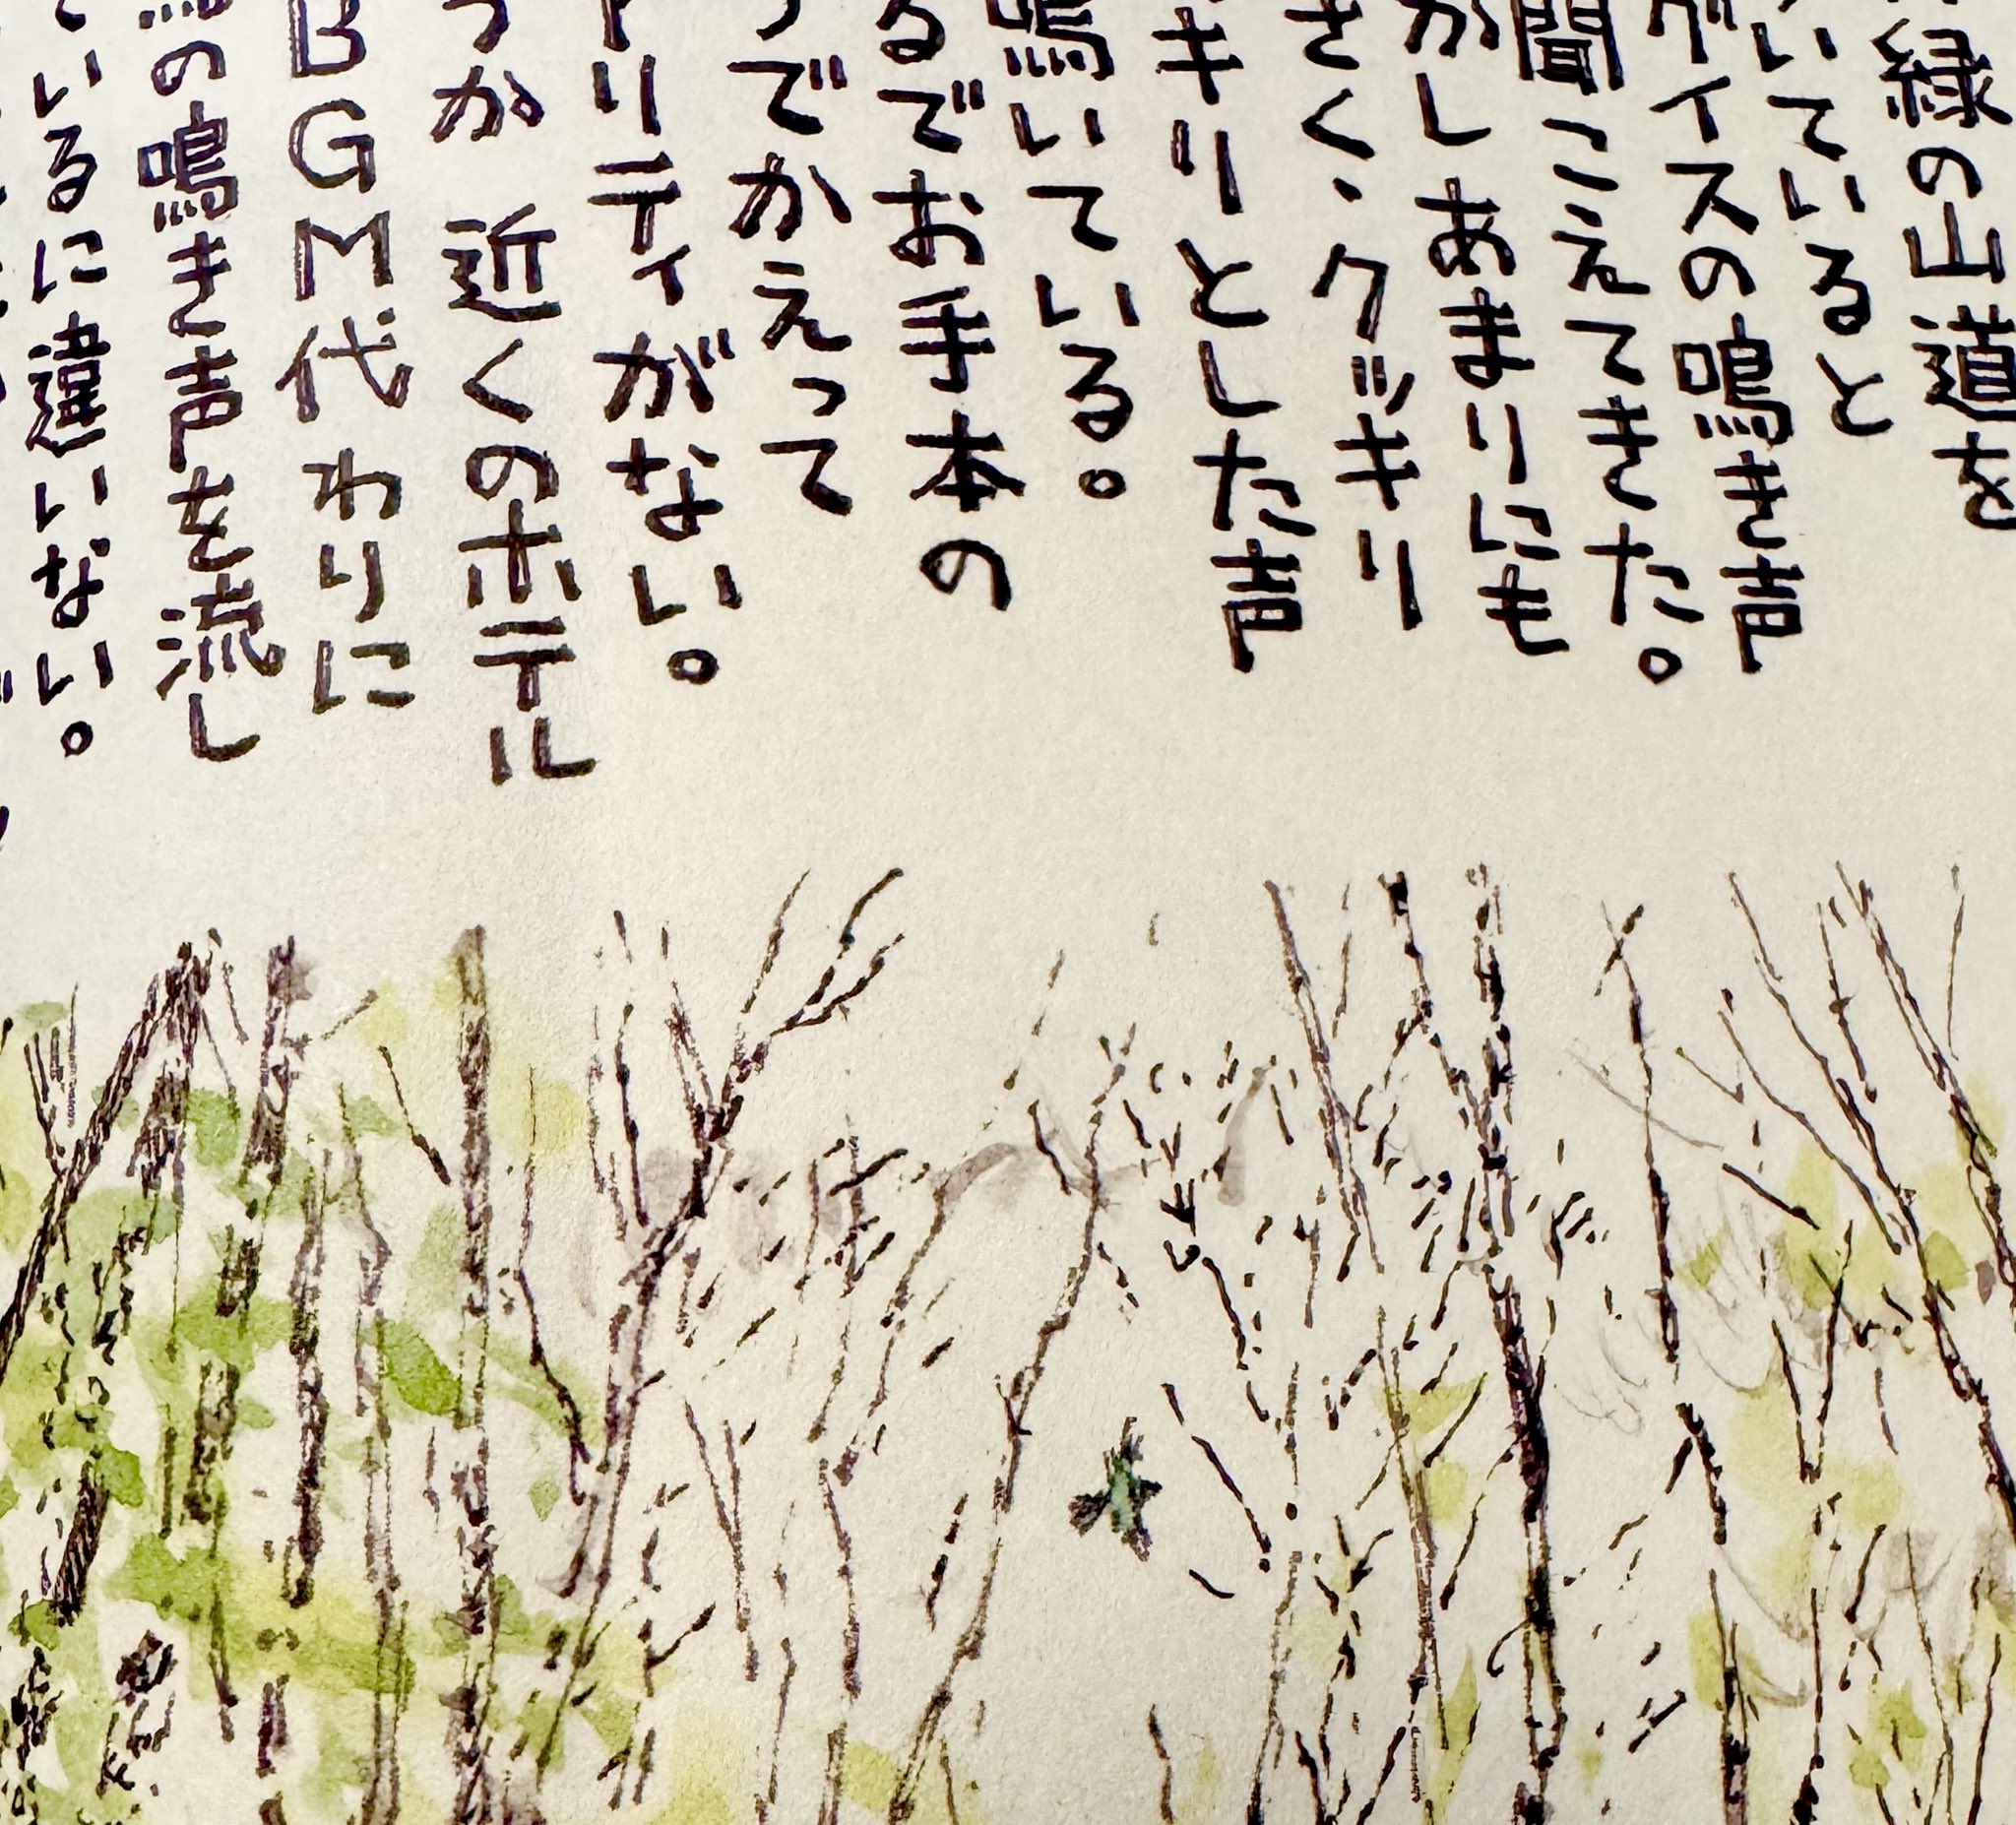 緑の山道を
いていると
グイスの鳴き声
聞こえてきた。
かしあまりにも
きく、クッキリ
キリとした声
鳴いている。
るでお手本の
うでかえって
リティがない。
つか 近くのホテル
BGM代わりに
の鳴き声を流し
いるに違いない。